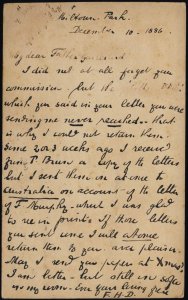 Milltown Park.
December 10. 1886
My dear Father
I did not at all forget your
commission. but the
which you said in your letter you were
sending me never reached - that
is why I could not return them.
Some 2 or 3 weeks ago I received
from P. Brun a copy of the letters
but I sent them on at once to
Australia on account of the letter
of F. Murphy, which I was glad
to see in print. If those letters
you sent come I will at once
return them to you
May I send you papers at Xmas?
I am better but still in
my room. Ever yours